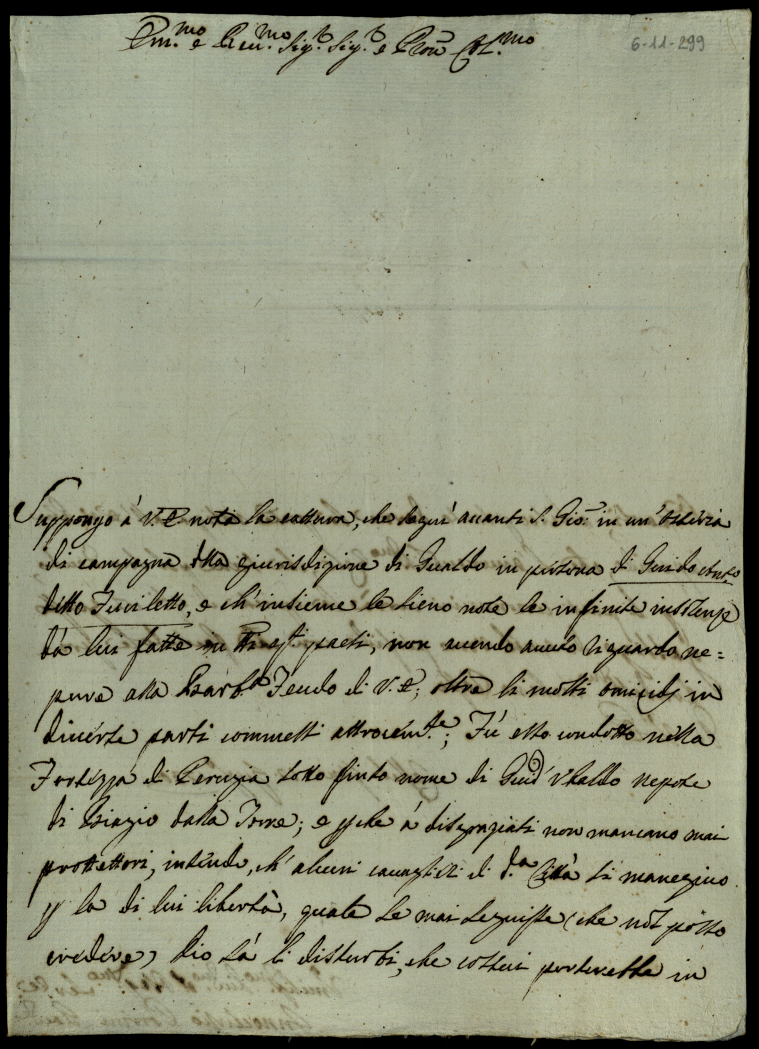 Em.mo e Reu.mo Sig.r Sig.r e Pron Col.mo
6-11-299
Suppongo à V.E. nota la cattura, che seguì auanti S. Gio: in un'osteria
di campagna dlla giurisdizione di Gualdo in persona di Guido
detto Fusiletto, e ch'insieme le sieno note le infinite insolenze
dà lui fatte in tti qsti paesi, non auendo auuto riguardo ne=
pure alla Barb.a Feudo di V.E; oltre li molti omicidj in
diuerse parti commessi attrocem.te; Fù esso condotto nella
Fortezza di Perugia sotto finto nome di Vbaldo nepote
di Biagio dalla Torre; e pche à disgraziati non mancano mai
prottettori, intendo, ch'alcuni caualieri di d.a Città si maneggino
p la di lui libertà, quale se mai seguisse (che nōt posso
credere) Dio sà li disturbi, che costui porterebbe in